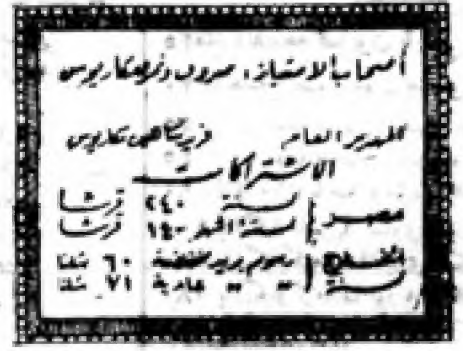 أصحاب الامتياز: صروف ونمر ومكاريوس
المدير العام فريد شاهين مكاريوس
الاشتراكات
مصر لسنة ٢٤٠ قرشا
لستة أشهر ١٤٠ قرشا
الخارج رسوم بريد مخفضة ٦٠ شلنا
سنة » » عادية ٧١ شلنا